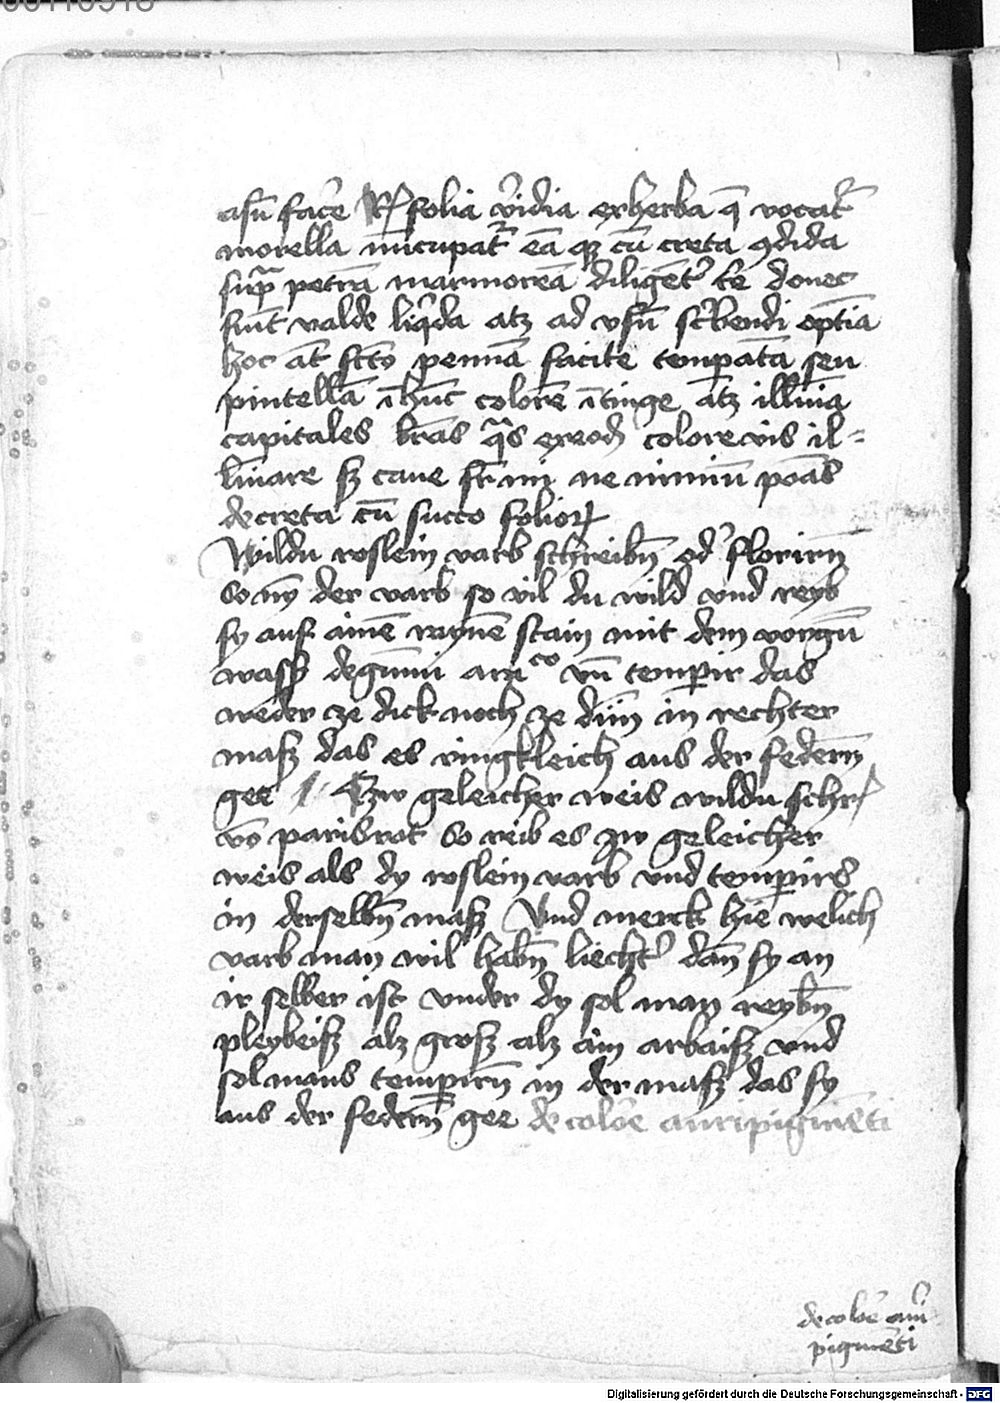 asū facͤe Rͤ folia v̾idia ex herba q̄ vocat᷑
morella nūcupat᷑ eā qꝫ cū creta ꝯdida
supᷓ petrā marmoreā diligēt̾ te᷑ donec
fiūt valde liq̇da atꝫ ad vsū sc̾bendi optīa
hoc āt fc̄to pennā facile tempatā seu
pincellā ī hūc colorē ītinge atꝫ illūīa
capitales lr̄as qᷓs ex eod̄ colore vis il=
lūīare sꝫ caue fr̄ mi ne nimiū pōas
de creta cū succo folioꝝ
Wildu roslein varb schreibn̄ od̾ florirn̄
so nȳ der varb so vil du wild vnd reyb
sy auf ainē raynē stain mit dem vorgn̄
wass̾ de gūmi ara͞co vn̄ temperir das
weder ze dick noch ze dün in rechter
masꝫ das es ringkleich aus der federn̄
gee Zw geleicher weis wildu schr
vō parisrot so reib es zw geleicher
weis als dy roslein varb vnd temperirs
in derselbn̄ masꝫ Vnd merck hie welich
varb man wil habn̄ liecht̾ dan̄ sy an
ir selber ist vnder dy sol man reybn̄
pleybeisꝫ alz grosꝫ alz ain arbaisꝫ vnd
sol mans temperirn̄ in der masꝫ das sy
aus der federn̄ gee de colōe auripigmēti
de colōe auri
pigmēti
Digitalisierung gefördert durch die Deutsche Forschungsgemeinschaft - DFG